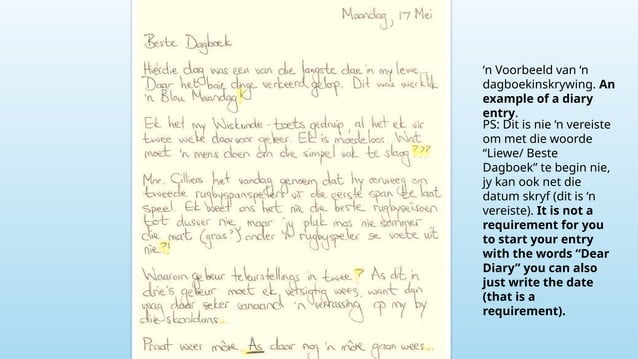 Maandag, 17 Mei
Beste Dagboek
Hierdie dag was een van die langste dae in my lewe...
Daar het baie dinge verkeerd geloop. Dit was werklik
'n Blou Maandag!
Ek het my Wiskunde-toets gedruip, al het ek vir
twee weke daarvoor geleer. Ek is moedeloos. Wat
moet 'n mens doen om die simpel vak te slaag???
Mnr. Cilliers het vandag genoem dat hy oorweeg om
tweede rugbyspanspelers vir die eerste span te laat
speel. Ek weet ons het nie die beste rugbyseisoen
tot dusver nie, maar jy pluk mos nie sommer
die mat (gras?) onder 'n rugbyspeler se voete uit
nie?!
Waarom gebeur teleurstellings in twee? As dit in
drie's gebeur moet ek versigtig wees, want dan
wag daar seker vanaand 'n verrassing op my by
die skooldans...
Praat weer môre. As daar nog 'n môre gaan wees...
‘n Voorbeeld van ‘n
dagboekinskrywing. An
example of a diary
entry.
PS: Dit is nie ‘n vereiste
om met die woorde
“Liewe/ Beste
Dagboek” te begin nie,
jy kan ook net die
datum skryf (dit is ‘n
vereiste). It is not a
requirement for you
to start your entry
with the words “Dear
Diary” you can also
just write the date
(that is a
requirement).